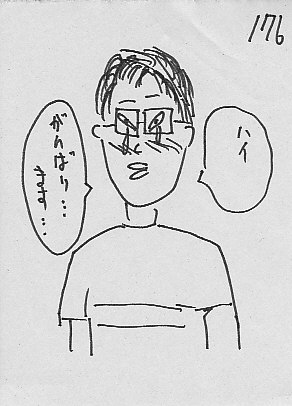 176
ハイ
がんばり…
ます…